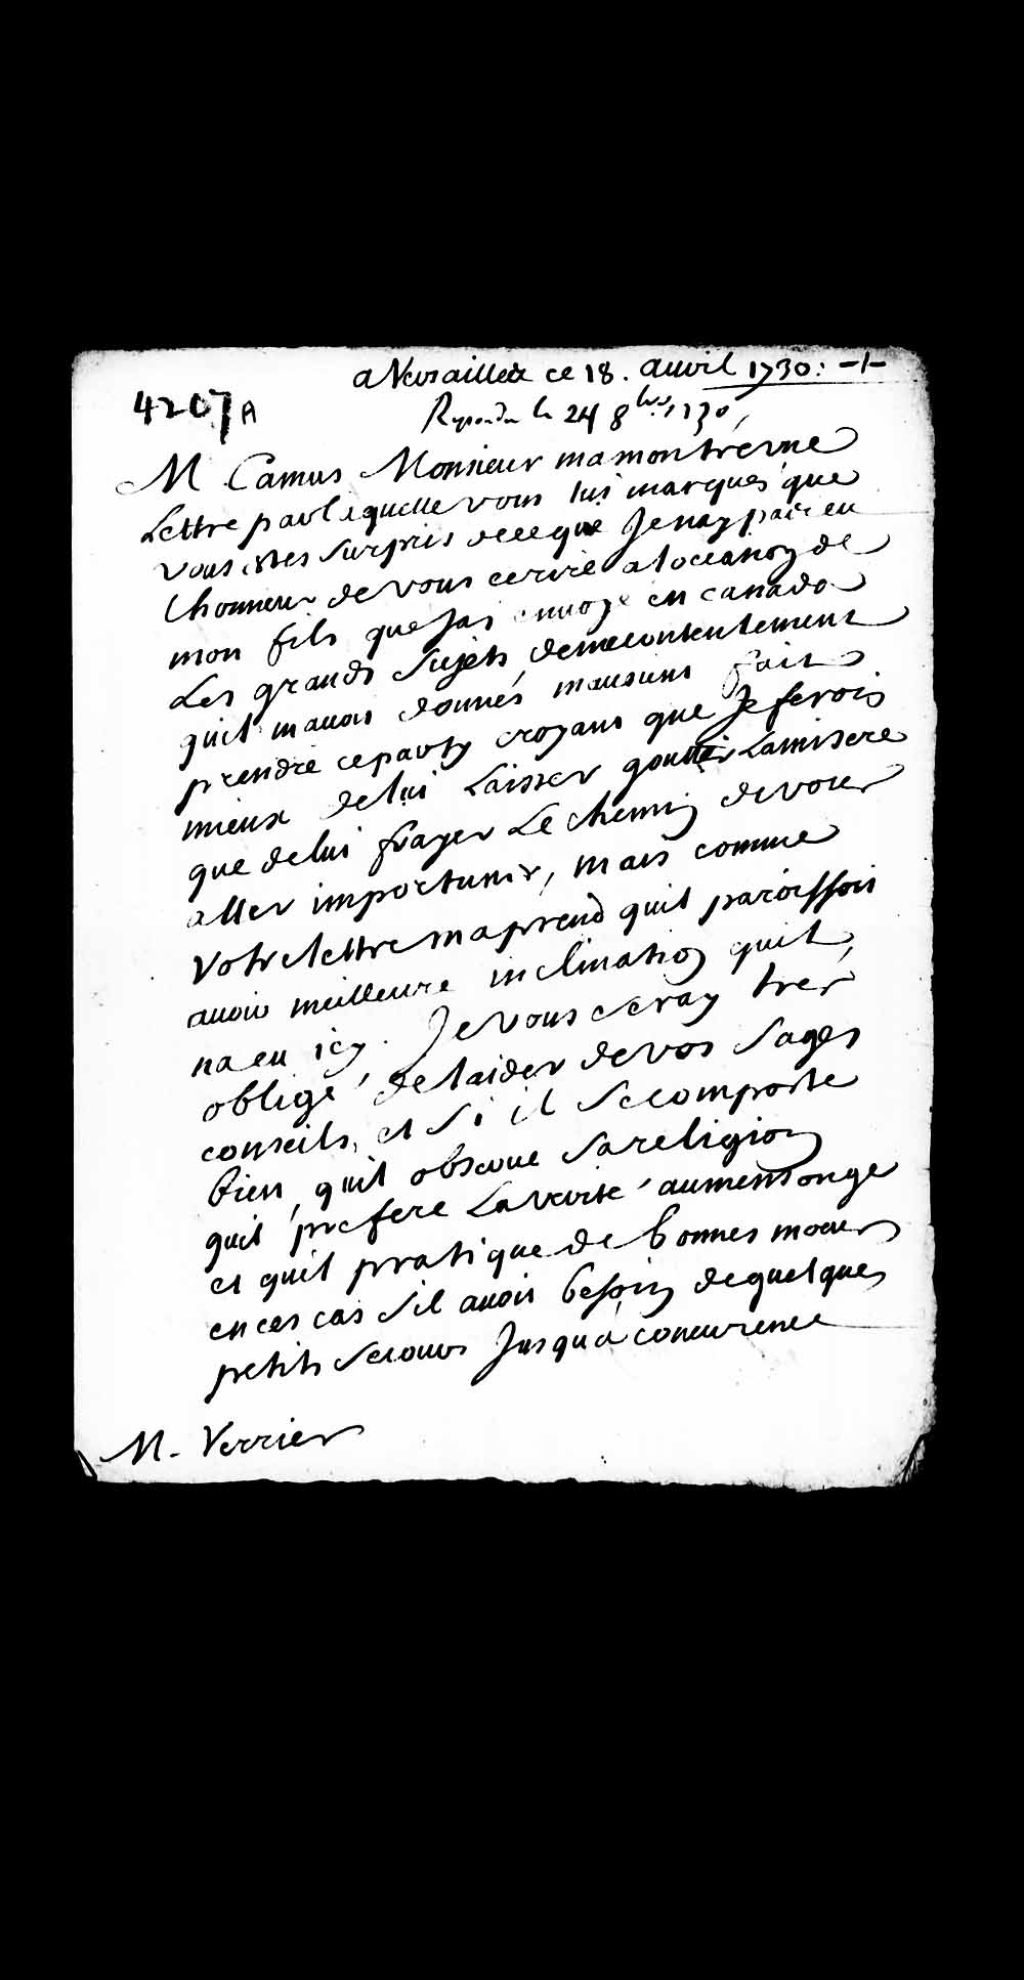 a Versailles ce 18. auvil 1730: -/-
4207 A
Repondu le 24 8bre 1730
M Camus Monsieur ma montré une
Lettre par laquelle vous lui marqués que
vous estes surpris de ce que Je nay pas eu
lhonneur de vous ecrire a loccasion de
mon fils que Jai envoyé en canada
Les grands sujets de mecontentement
quil mavoit donnés mausuns fait
prendre ce party croyant que Je ferois
mieux de lui Laisser gouter La misere
que de lui frayer Le chemin de vous
aller importuner, mais comme
Votre lettre maprend quil paroissoit
avoir meilleure inclination quil
na eu icy. Je vous seray tres
obligé de laider de vos sages
conseils, et si il se comporte
bien, quil observe sa religion
quil prefere La verité au mensonge
et quil pratique de bonnes moeurs
en ces cas sil avoit besoin de quelques
petits secours Jusqu'a concurence
M. Verrier